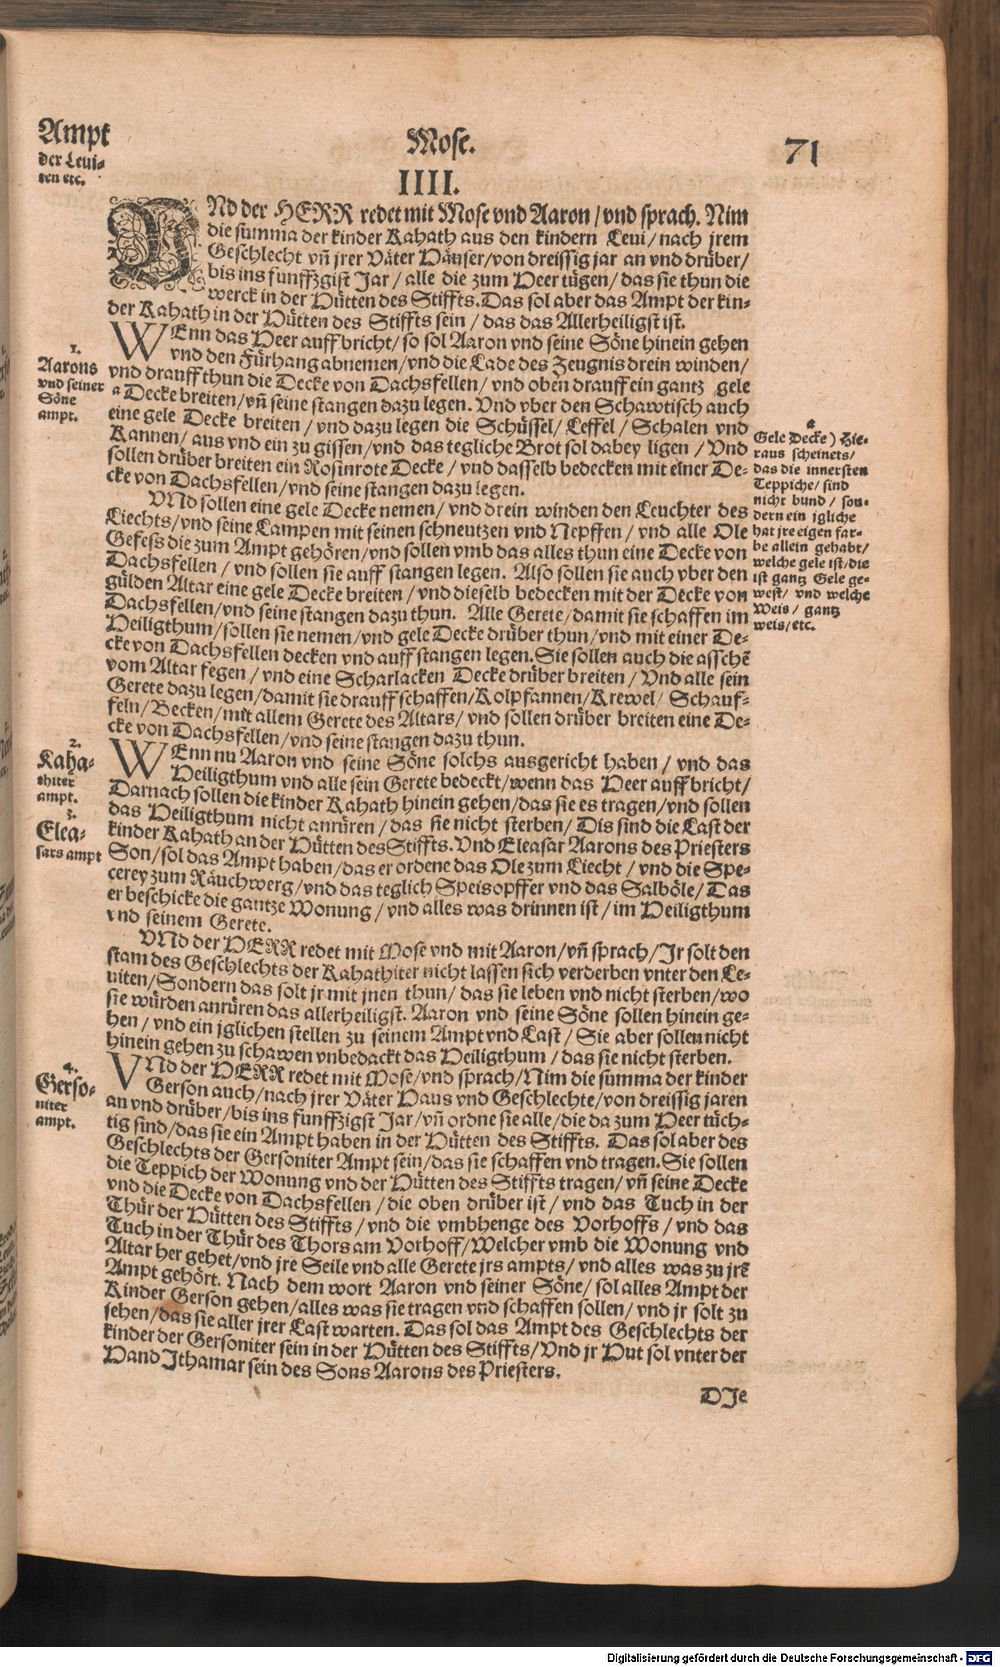 Ampt
der Leui-
ten etc.
Mose.
71
IIII.
VNd der HERR redet mit Mose vnd Aaron / vnd sprach. Nim
die summa der kinder Kahath aus den kindern Leui / nach jrem
Geschlecht vn̄ jrer Väter Häuser / von dreissig jar an vnd drüber /
bis ins funffzigist Jar / alle die zum Heer tügen / das sie thun die
werck in der Hütten des Stiffts. Das sol aber das Ampt der kin-
der Kahath in der Hütten des Stiffts sein / das das Allerheiligst ist.
1.
Aarons
vnd seiner
Söne
ampt.
WEnn das Heer auffbricht / so sol Aaron vnd seine Söne hinein gehen
vnd den Fürhang abnemen / vnd die Lade des Zeugnis drein winden /
vnd drauff thun die Decke von Dachsfellen / vnd oben drauff ein gantz gele
a Decke breiten / vn̄ seine stangen dazu legen. Vnd vber den Schawtisch auch
eine gele Decke breiten / vnd dazu legen die Schüssel / Leffel / Schalen vnd
Kannen / aus vnd ein zu gissen / vnd das teglliche Brot sol dabey ligen / Vnd
sollen drüber breiten ein Rosinrote Decke / vnd dasselb bedecken mit einer De-
cke von Dachsfellen / vnd seine stangen dazu legen.
a
Gele Decke) Hie-
raus scheinets /
das die innersten
Teppiche / sind
nicht bund / son-
dern ein jgliche
hat jre eigen far-
be allein gehabt /
welche gele ist / die
ist gantz Gele ge-
west / vnd welche
Weis / gantz
weis / etc.
VNd sollen eine gele Decke nemen / vnd drein winden den Leuchter des
Liechts / vnd seine Lampen mit seinen schneutzen vnd Nepffen / vnd alle Ole
Gefess die zum Ampt gehören / vnd sollen vmb das alles thun eine Decke von
Dachsfellen / vnd sollen sie auff stangen legen. Also sollen sie auch vber den
gülden Altar eine gele Decke breiten / vnd dieselb bedecken mit der Decke von
Dachsfellen / vnd seine stangen dazu thun. Alle Gerete / damit sie schaffen im
Heiligthum / sollen sie nemen / vnd gele Decke drüber thun / vnd mit einer De-
cke von Dachsfellen decken vnd auff stangen legen. Sie sollen auch die asschē
vom Altar fegen / vnd eine Scharlacken Decke drüber breiten / Vnd alle sein
Gerete dazu legen / damit sie drauff schaffen / Kolpfannen / Krewel / Schauf-
feln / Becken / mit allem Gerete des Altars / vnd sollen drüber breiten eine De-
cke von Dachsfellen / vnd seine stangen dazu thun.
2.
Kaha-
thiter
ampt.
3.
Elea-
sars ampt
WEnn nu Aaron vnd seine Söne solchs ausgericht haben / vnd das
Heiligthum vnd alle sein Gerete bedeckt / wenn das Heer auffbricht /
Darnach sollen die kinder Kahath hinein gehen / das sie es tragen / vnd sollen
das Heiligthum nicht anrüren / das sie nicht sterben / Dis sind die Last der
kinder Kahath an der Hütten des Stiffts. Vnd Eleasar Aarons des Priesters
Son / sol das Ampt haben / das er ordene das Ole zum Liecht / vnd die Spe-
cerey zum Räuchwerg / vnd das teglich Speisopffer vnd das Salböle / Das
er beschicke die gantze Wonung / vnd alles was drinnen ist / im Heiligthum
vnd seinem Gerete.
VNd der HERR redet mit Mose vnd mit Aaron / vn̄ sprach / Jr solt den
stam des Geschlechts der Kahathiter nicht lassen sich verderben vnter den Le-
uiten / Sondern das solt jr mit jnen thun / das sie leben vnd nicht sterben / wo
sie würden anrüren das allerheiligst. Aaron vnd seine Söne sollen hinein ge-
hen / vnd ein jglichen stellen zu seinem Ampt vnd Last / Sie aber sollen nicht
hinein gehen zu schawen vnbedackt das Heiligthum / das sie nicht sterben.
4.
Gerso-
niter
ampt.
VNd der HERR redet mit Mose / vnd sprach / Nim die summa der kinder
Gerson auch / nach jrer Väter Haus vnd Geschlechte / von dreissig jaren
an vnd drüber / bis ins funffzigst Jar / vn̄ ordne sie alle / die da zum Heer tüch-
tig sind / das sie ein Ampt haben in der Hütten des Stiffts. Das sol aber des
Geschlechts der Gersoniter Ampt sein / das sie schaffen vnd tragen. Sie sollen
die Teppich der Wonung vnd der Hütten des Stiffts tragen / vn̄ seine Decke
vnd die Decke von Dachsfellen / die oben drüber ist / vnd das Tuch in der
Thür der Hütten des Stiffts / vnd die vmbhenge des Vorhoffs / vnd das
Tuch in der Thür des Thors am Vorhoff / Welcher vmb die Wonung vnd
Altar her gehet / vnd jre Seile vnd alle Gerete jrs ampts / vnd alles was zu jrē
Ampt gehört. Nach dem wort Aaron vnd seiner Söne / sol alles Ampt der
Kinder Gerson gehen / alles was sie tragen vnd schaffen sollen / vnd jr solt zu
sehen / das sie aller jrer Last warten. Das sol das Ampt des Geschlechts der
kinder der Gersoniter sein in der Hütten des Stiffts / Vnd jr Hut sol vnter der
Hand Jthamar sein des Sons Aarons des Priesters.
DJe
Digitalisierung gefördert durch die Deutsche Forschungsgemeinschaft - DFG